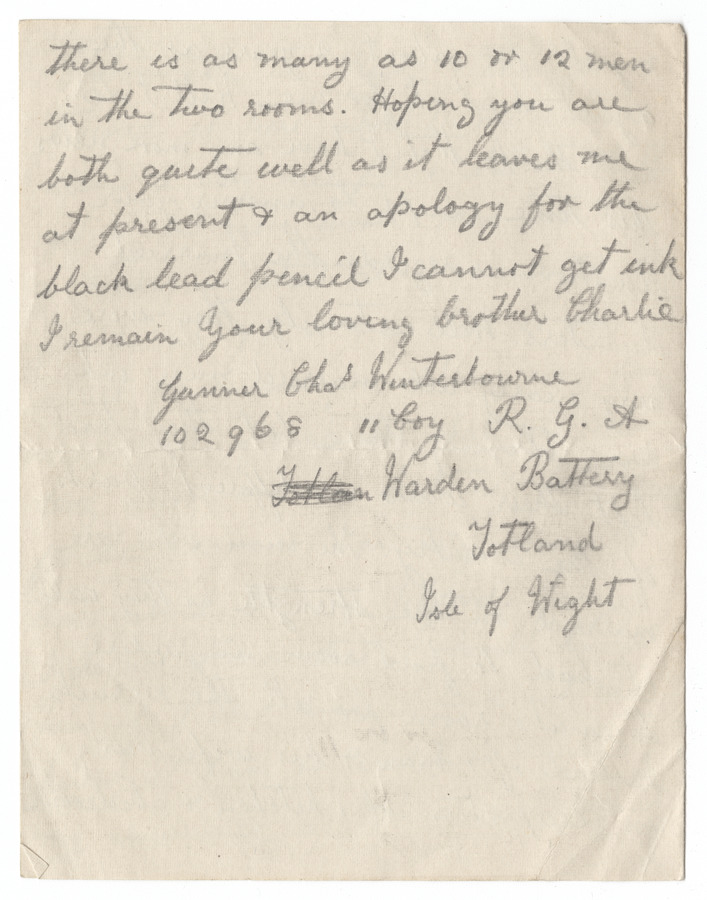 there is as many as 10 or 12 men
in the two rooms. Hoping you are
both quite well as it leaves me
at present & an apology for the
black lead pencil I cannot get ink
I remain Your loving brother Charlie
Gunner Chas Winterbourne
102968 "Coy R. G. A
Totlan Warden Battery
Totland
Isle of Wight